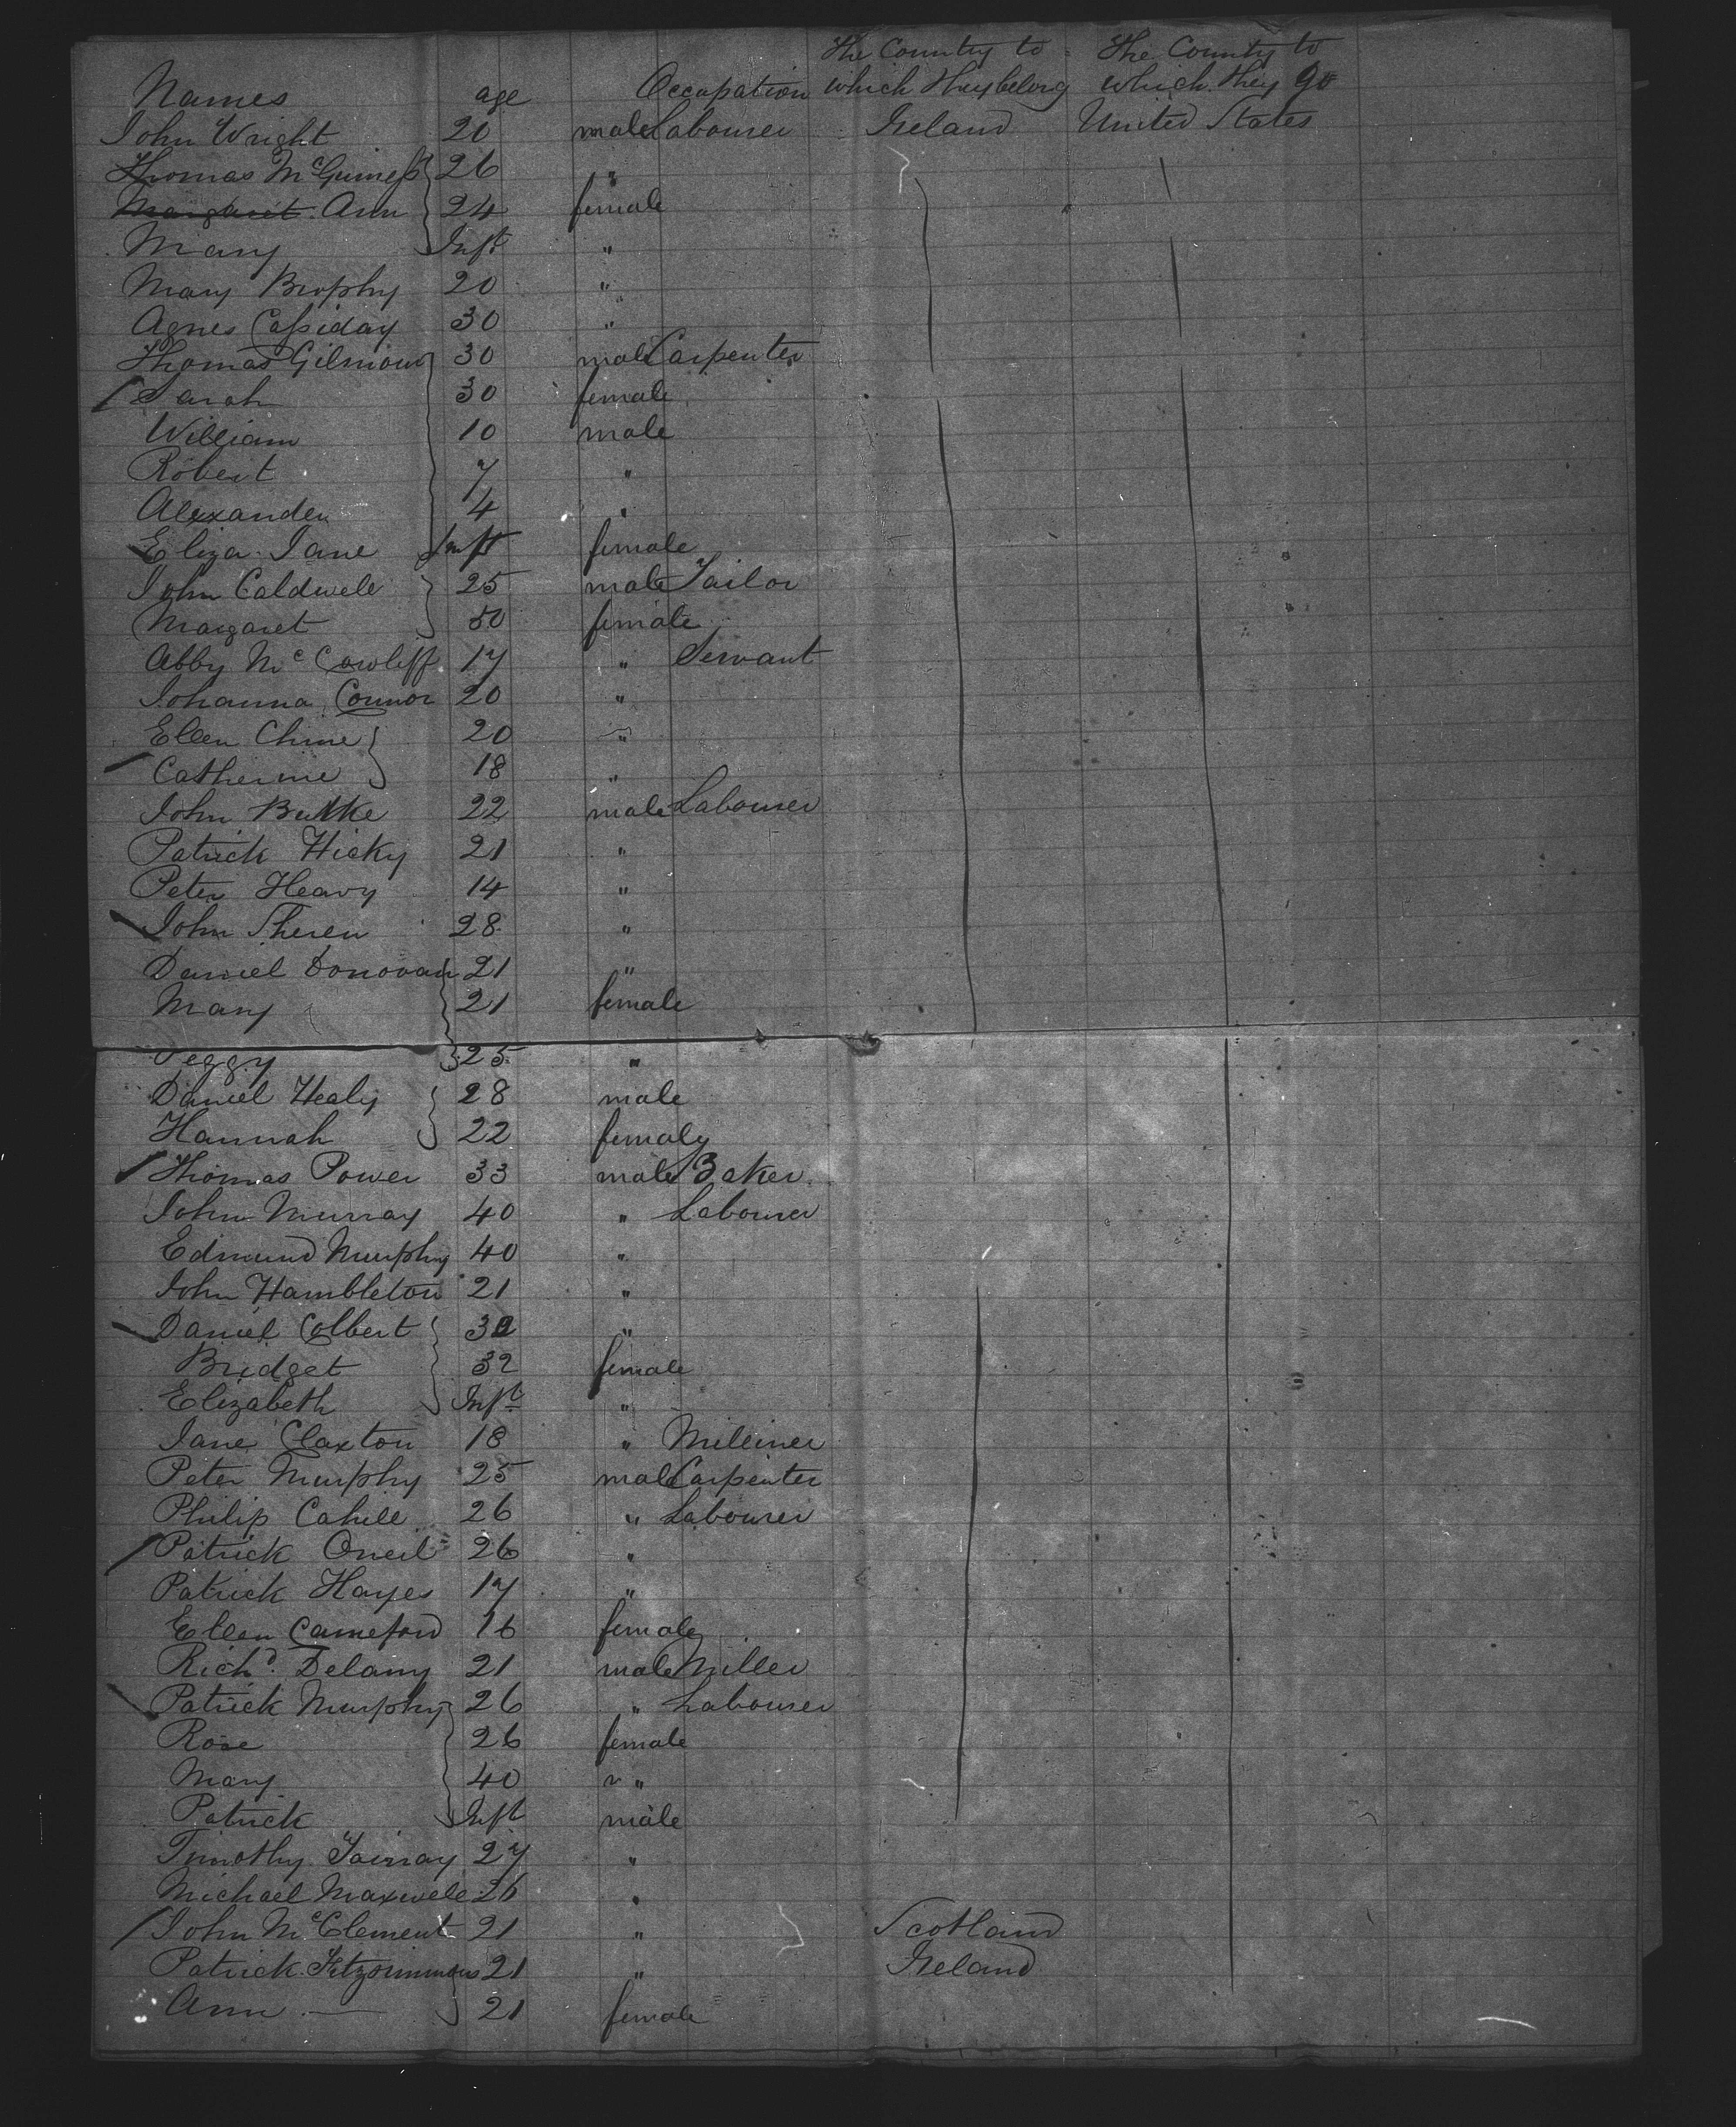 The Country to The County to
Names age Occupation which they belong which they go
John Wright 20 male Labourer Ireland United States
Thomas McGuiness 26 "
Margaret Ann 24 female
Mary Inft "
Mary Brophy 20 "
Agnes Cassiday 30 "
Thomas Gilmour 30 male Carpenter
Sarah 30 female
William 10 male
Robert 7 "
Alexander 4 "
Eliza Jane Inft female
John Caldwell 25 male Tailor
Margaret 50 female
Abby Mc Cowliff 17 " Servant
Johanna Connor 20 "
Ellen Chine 20 "
Catherine 18 "
John Burke 22 male Labourer
Patrick Hicky 21 "
Peter Heavy 14 "
John Sheren 28 "
Daniel Donovan 21 "
Mary 21 female
Peggy 25 "
Daniel Healy 28 male
Hannah 22 female
Thomas Power 33 male Baker
John Murray 40 " Labourer
Edmund Murphy 40 "
John Hambleton 21 "
Daniel Colbert 32 "
Bridget 32 female
Elizabeth Inft "
Jane Claxton 18 " Milliner
Peter Murphy 25 male Carpenter
Philip Cahill 26 " Labourer
Patrick Oneil 26 "
Patrick Hayes 17 "
Ellen 16 female
Richd. Delany 21 male Miller
Patrick Murphy 26 " Labourer
Rose 26 female
Mary 40 " "
Patrick Inft male
Timothy 27 "
Michael Maxwell 26 "
John McClement 21 " Scotland
Patrick Fitzsimmons 21 " Ireland
Ann 21 female